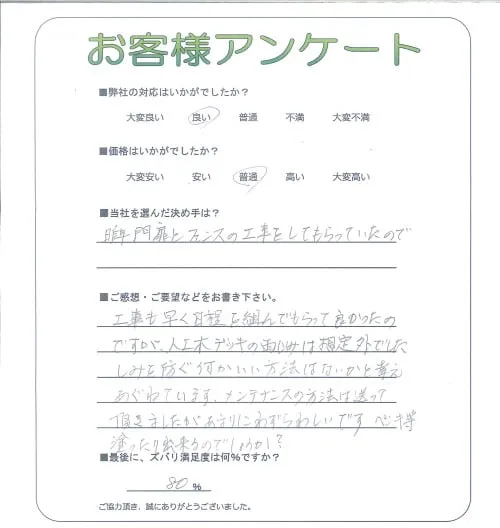 お客様アンケート
■弊社の対応はいかがでしたか？
大変良い 良い 普通 不満 大変不満
■価格はいかがでしたか？
大変安い 安い 普通 高い 大変高い
■当社を選んだ決め手は？
昨年門扉とフェンスの工事をしてもらっていたので
■ご感想・ご要望などをお書き下さい。
工事も早く日程を組んでもらって良かったの
ですが、人工木デッキの雨じみは想定外でした
しみを防ぐ何かいい方法はないかと考え
あぐねています。メンテナンスの方法は送って
頂きましたがあまりにわずらわしいです ペンキ等
塗ったり出来るのでしょうか？
■最後に、ズバリ満足度は何%ですか？
80 %
ご協力頂き、誠にありがとうございました。